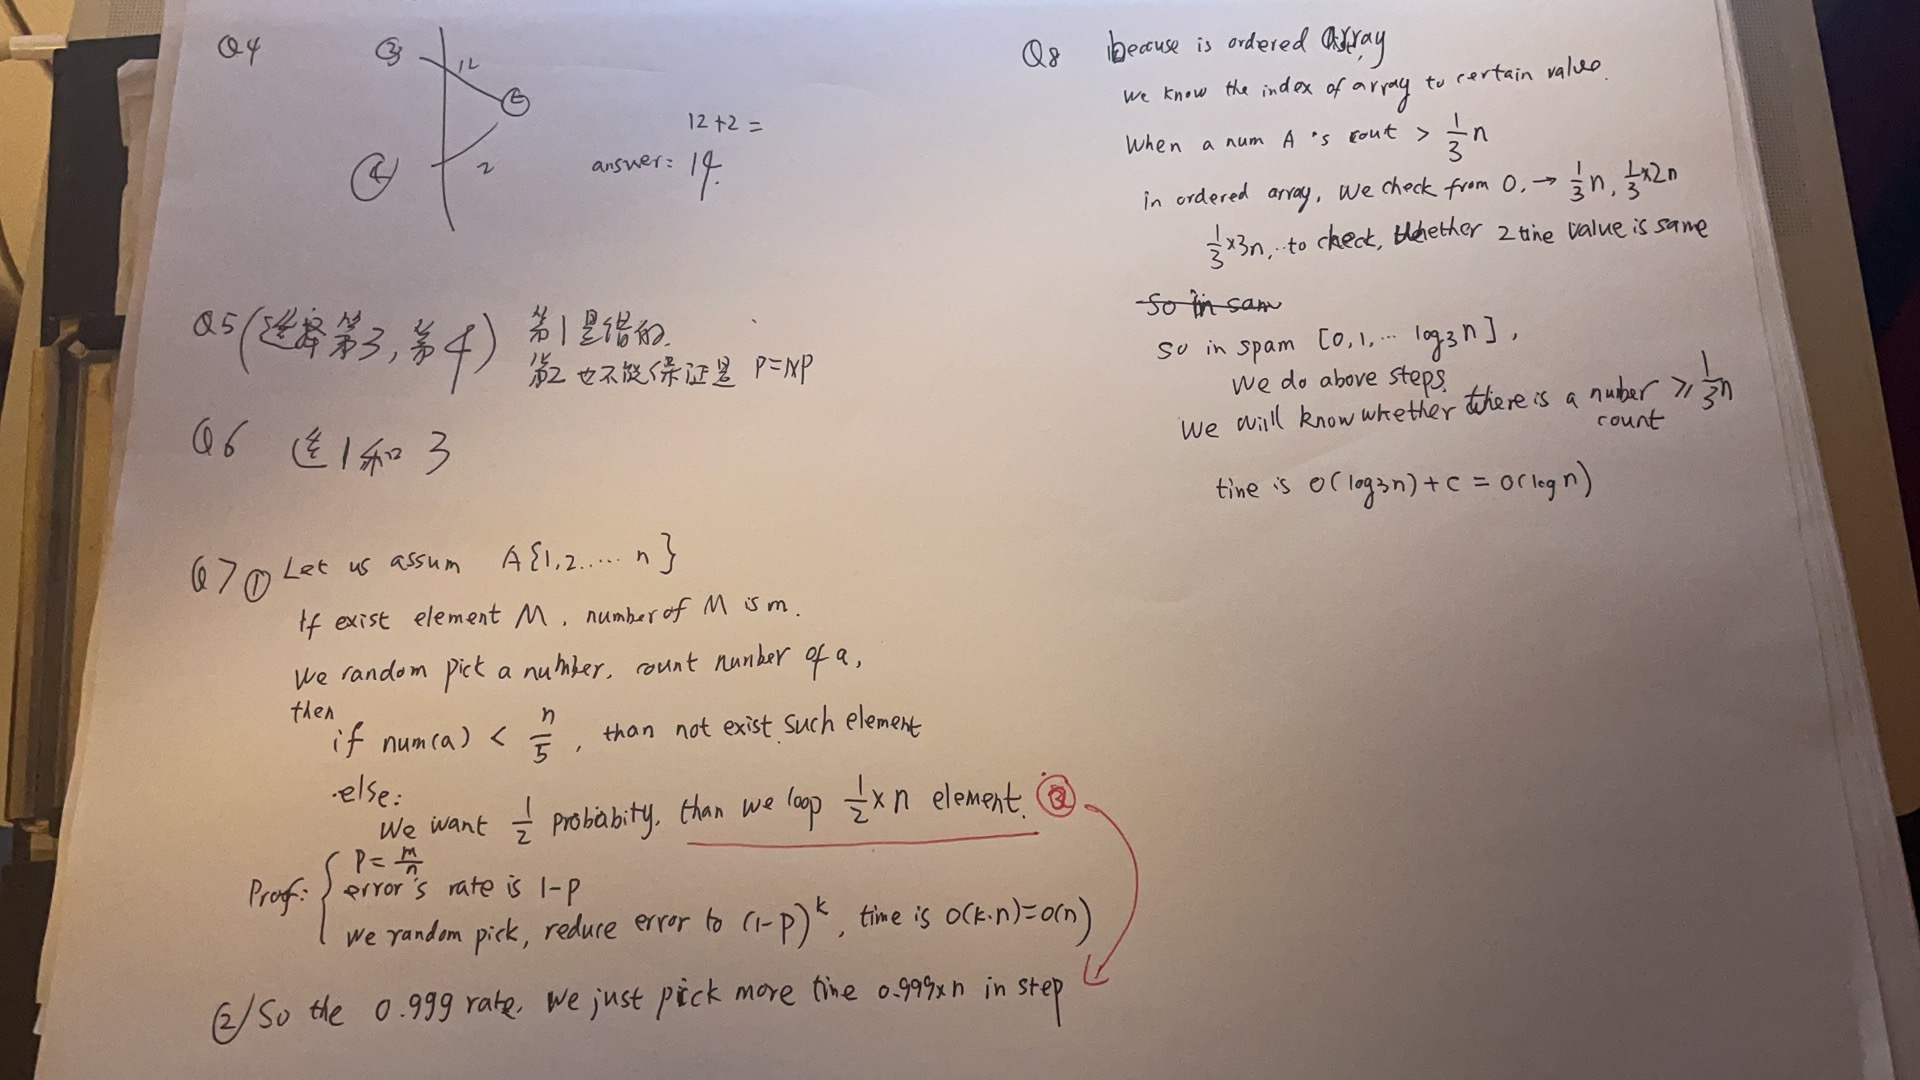 Q4
3
12
t
2
12+2=
answer: 14.
Q5(选择第3,第4) 第1是错的.
第2也不能保证是 P=NP
Q6 选1和3
Q7 ① Let us assum A{1,2.....n}
If exist element M, number of M is m.
We random pick a number, count number of a,
then
if num(a) < n/5, than not exist such element
else:
We want 1/2 probabity, than we loop 1/2 × n element.
Prof: P = m/n
error's rate is 1-p
we random pick, reduce error to (1-p)^k, time is O(k·n)=O(n)
② So the 0.999 rate, we just pick more time 0.999×n in step
Q8 because is ordered array
We know the index of array to certain value.
When a num A 's cout > 1/3 n
in ordered array, we check from 0, → 1/3 n, 1/3 ×2n
1/3 ×3n,..to check, whether 2 time value is same
So in sam
so in spam [0,1,... log3 n],
we do above steps.
We will know whether there is a number ≥ 1/3 n
count
time is O(log3n)+c = O(logn)